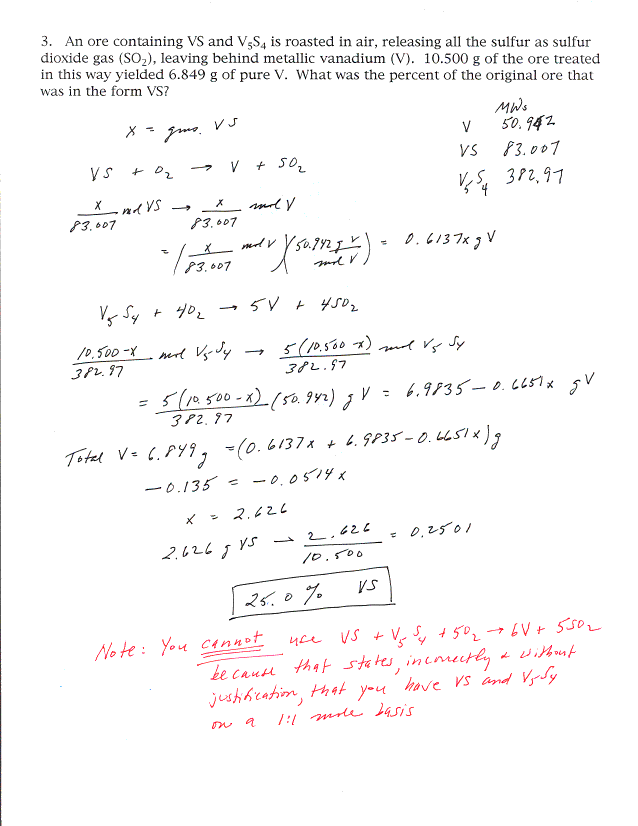 3. An ore containing VS and V₅S₄ is roasted in air, releasing all the sulfur as sulfur
dioxide gas (SO₂), leaving behind metallic vanadium (V). 10.500 g of the ore treated
in this way yielded 6.849 g of pure V. What was the percent of the original ore that
was in the form VS?
MWs
V 50.942
VS 83.007
V₅S₄ 382.97
x = gms. VS
VS + O₂ → V + SO₂
x/83.007 mol VS → x/83.007 mol V
= (x/83.007 mol V)(50.942 g V/mol V) = 0.6137x g V
V₅S₄ + 4O₂ → 5V + 4SO₂
10.500-x/382.97 mol V₅S₄ → 5(10.500-x)/382.97 mol V₅S₄
= 5(10.500-x)/382.97 (50.942) g V = 6.9835 - 0.6651x g V
Total V = 6.849 g = (0.6137x + 6.9835 - 0.6651x) g
-0.135 = -0.0514x
x = 2.626
2.626 g VS → 2.626/10.500 = 0.2501
25.0 % VS
Note: You cannot use VS + V₅S₄ + 5O₂ → 6V + 5SO₂
because that states, incorrectly & without
justification, that you have VS and V₅S₄
on a 1:1 mole basis